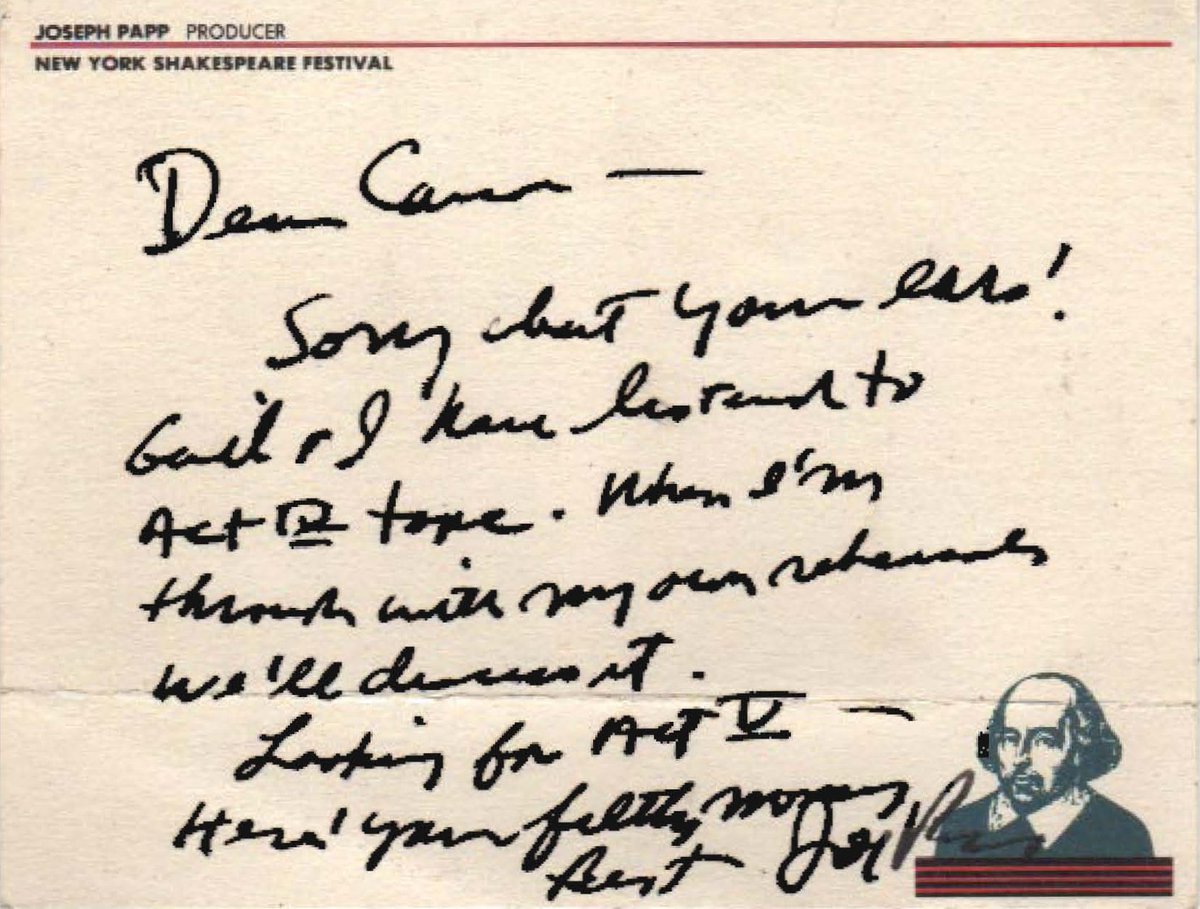 JOSEPH PAPP PRODUCER
NEW YORK SHAKESPEARE FESTIVAL
Dear —
Sorry about your ears!
Gail & I have listened to
Act IV tape. When I'm
through with my own rehearsals
we'll discuss it.
Looking for Act V —
Here' your filthy money
Best Joe Papp